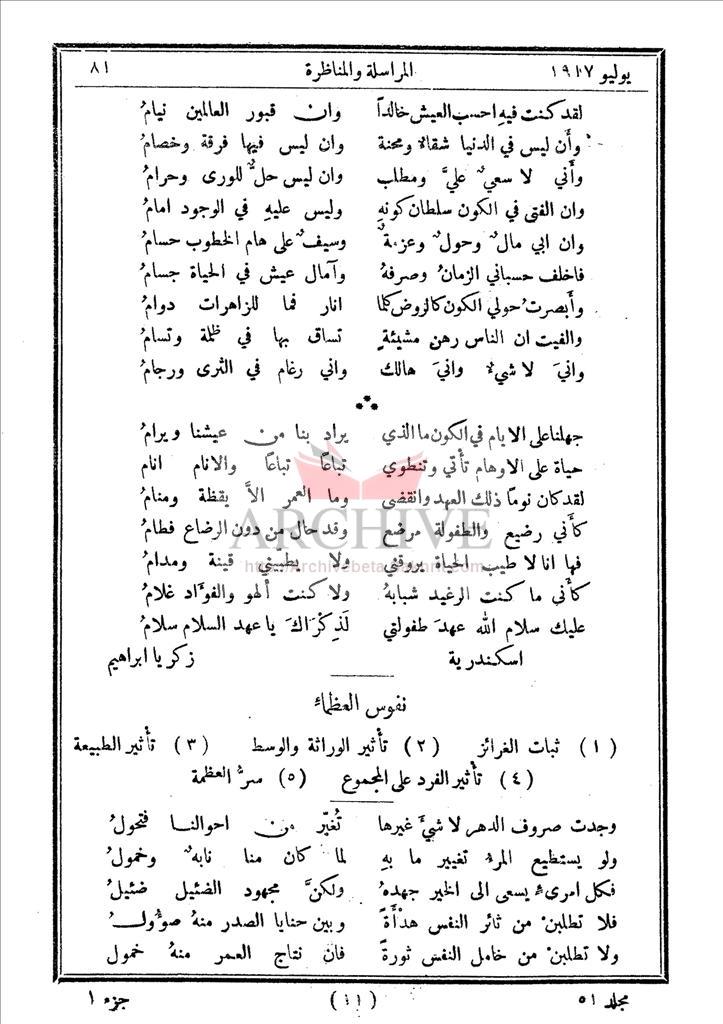 يوليو ١٩١٧ المراسلة والمناظرة ٨١
لقد كنت فيهِ احسب العيش خالداً وان قبور العالمين نيامُ
وأَن ليس في الدنيا شقاءٌ ومحنة وان ليس فيها فرقة وخصامُ
وأَني لا سعيٌ عليَّ ومطلب وان ليس حلٌّ للورى وحرامُ
وان الفتى في الكون سلطان كونهِ وليس عليهِ في الوجود امامُ
وان ابي مالٌ وحولٌ وعزمةٌ وسيفٌ على هام الخطوب حسامُ
فاخلف حسباني الزمانُ وصرفهُ وآمال عيش في الحياة جسامُ
وأبصرتُ حولي الكون كالروض كلما انار فما للزاهرات دوامُ
والفيت ان الناس رهن مشيئةٍ تساق بها في ظلمة وتسامُ
واني لا شيءٌ واني هالك واني رغام في الثرى ورجامُ
جهلنا على الايام في الكون ما الذي يراد بنا من عيشنا ويرامُ
حياة على الاوهام تأْتي وتنطوي تباعاً تباعاً والانام انام
لقد كان نوماً ذلك العهد وانقضى وما العمر الاَّ يقظة ومنامُ
كأَني رضيع والطفولة مرضع وقد حال من دون الرضاع فطامُ
فها انا لا طيب الحياة يروقني ولا يطبيني قينة ومدامُ
كأَني ما كنت الرغيد شبابهُ ولا كنت ألهو والفؤاد غلامُ
عليك سلام الله عهدَ طفولتي لَذِكْرَاكَ يا عهد السلام سلامُ
اسكندرية زكريا ابراهيم
ARCHIVE
نفوس العظماء
(١) ثبات الغرائز (٢) تأْثير الوراثة والوسط (٣) تأْثير الطبيعة
(٤) تأْثير الفرد على المجموع (٥) سرُّ العظمة
وجدت صروف الدهر لا شيءَ غيرها تُغيّر من احوالنا فتحولُ
ولو يستطيع المرءُ تغيير ما بهِ لما كان منا نابهٌ وخمولُ
فكل امرىءٍ يسعى الى الخير جهدهُ ولكنَّ مجهود الضئيل ضئيلُ
فلا تطلبنْ من ثائر النفس هدْأَةً وبين حنايا الصدر منهُ صؤُولُ
ولا تطلبنْ من خامل النفس ثورةً فان نتاج العمر منهُ خمول
مجلد ٥١ (١١) جزء ١